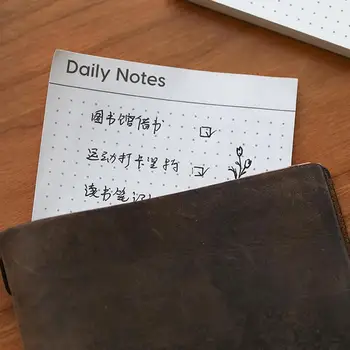 Daily Notes
图书馆借书
运动打卡坚持
读书笔记